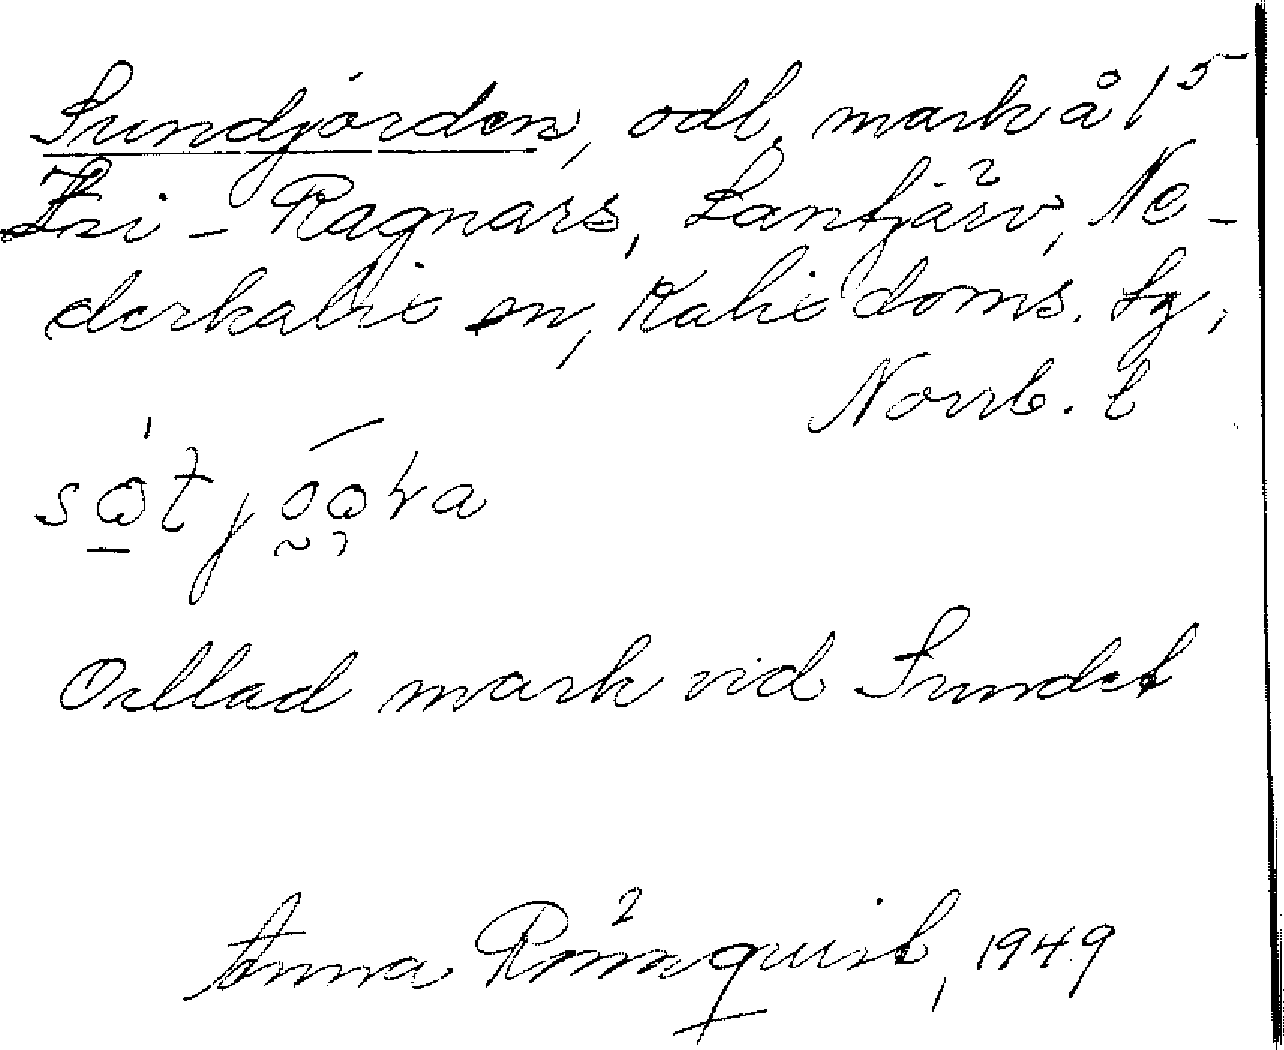 Sundjorden, odl. mark å 1⁵
Eri-Ragnars, Lantjärv, Ne-
derkalix sn, Kalix doms. lg,
Norrb. l
Odlad mark vid Sundet
Anna Rönnquist, 1949